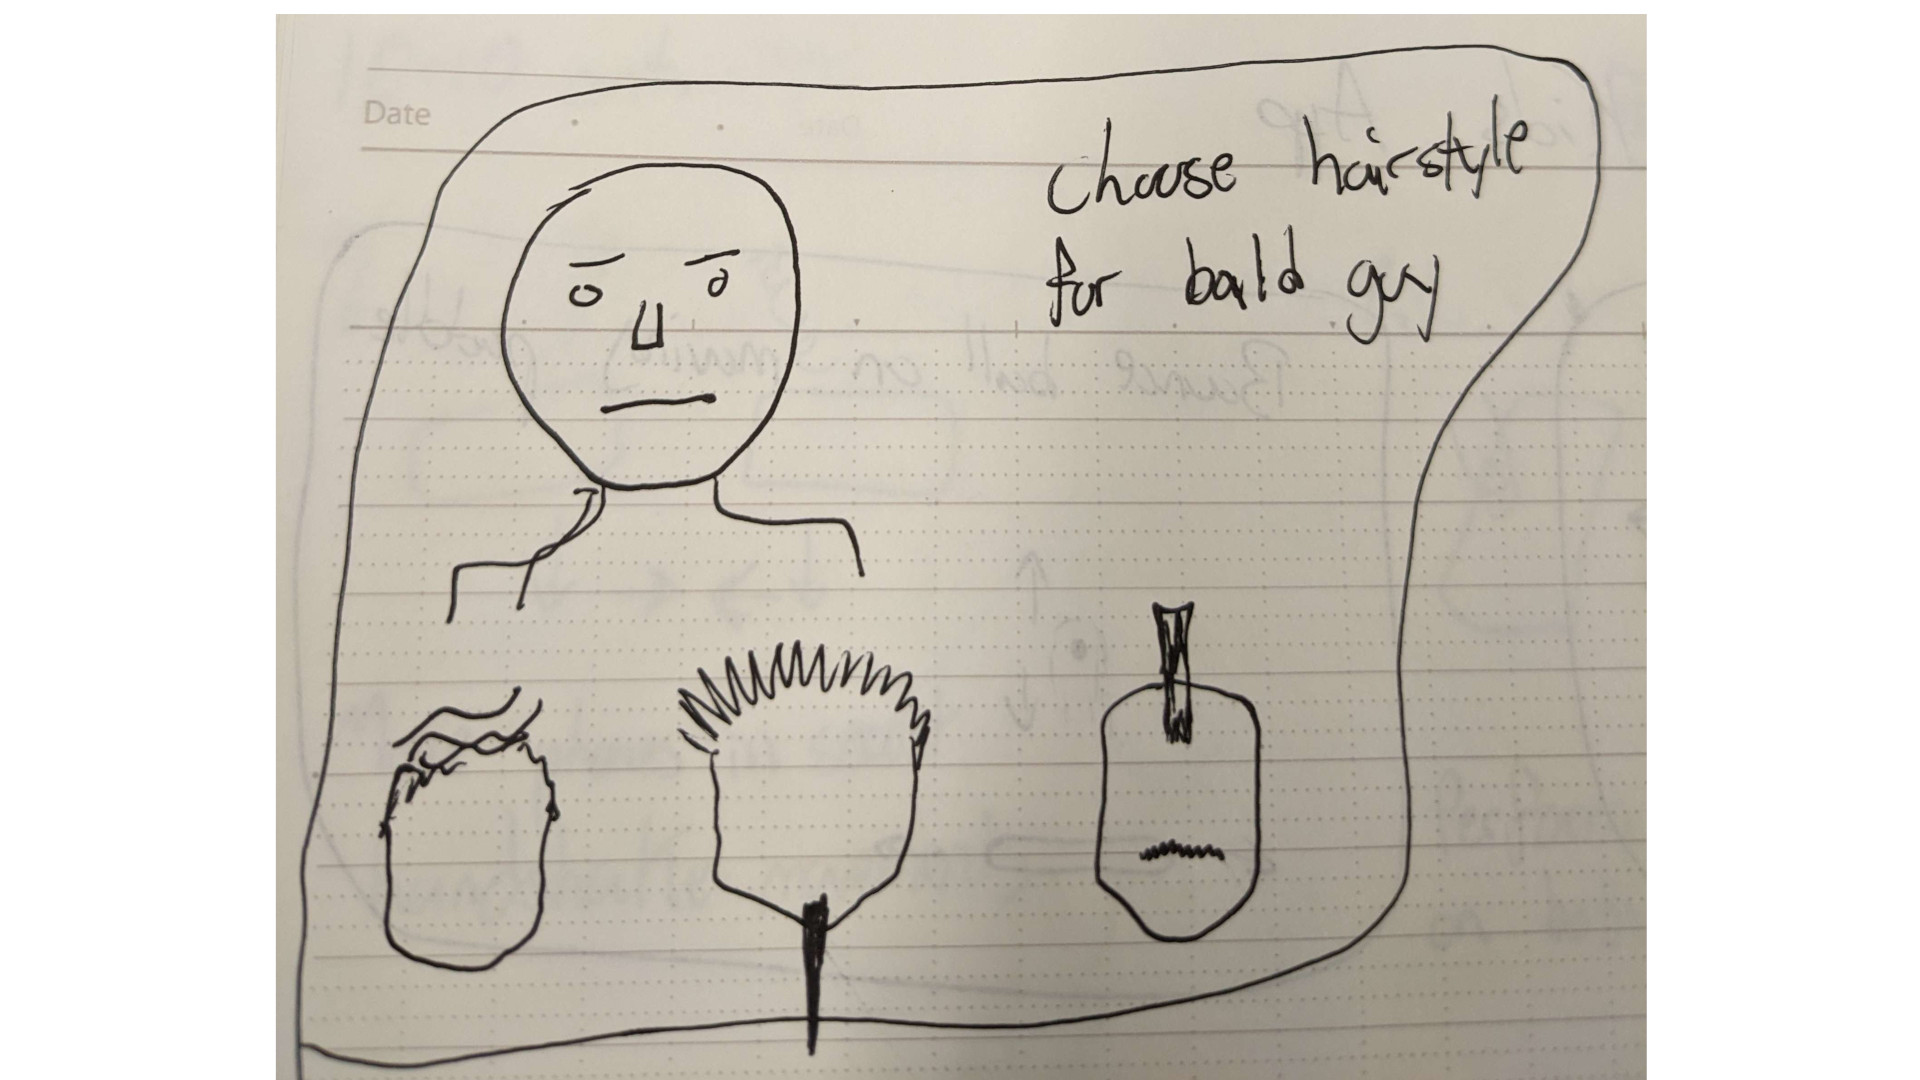 Date
choose hairstyle
for bald guy